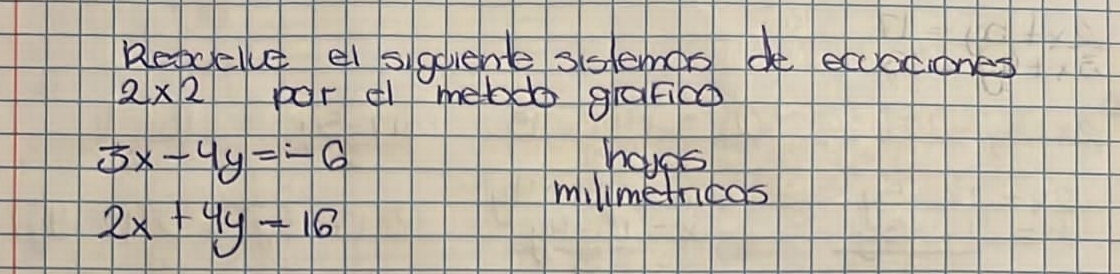 Resuelve el siguiente sistemas de ecuaciones
2x2 por el metodo grafico
3x - 4y = - 6
hojas
milimetricas
2x + 4y = 16